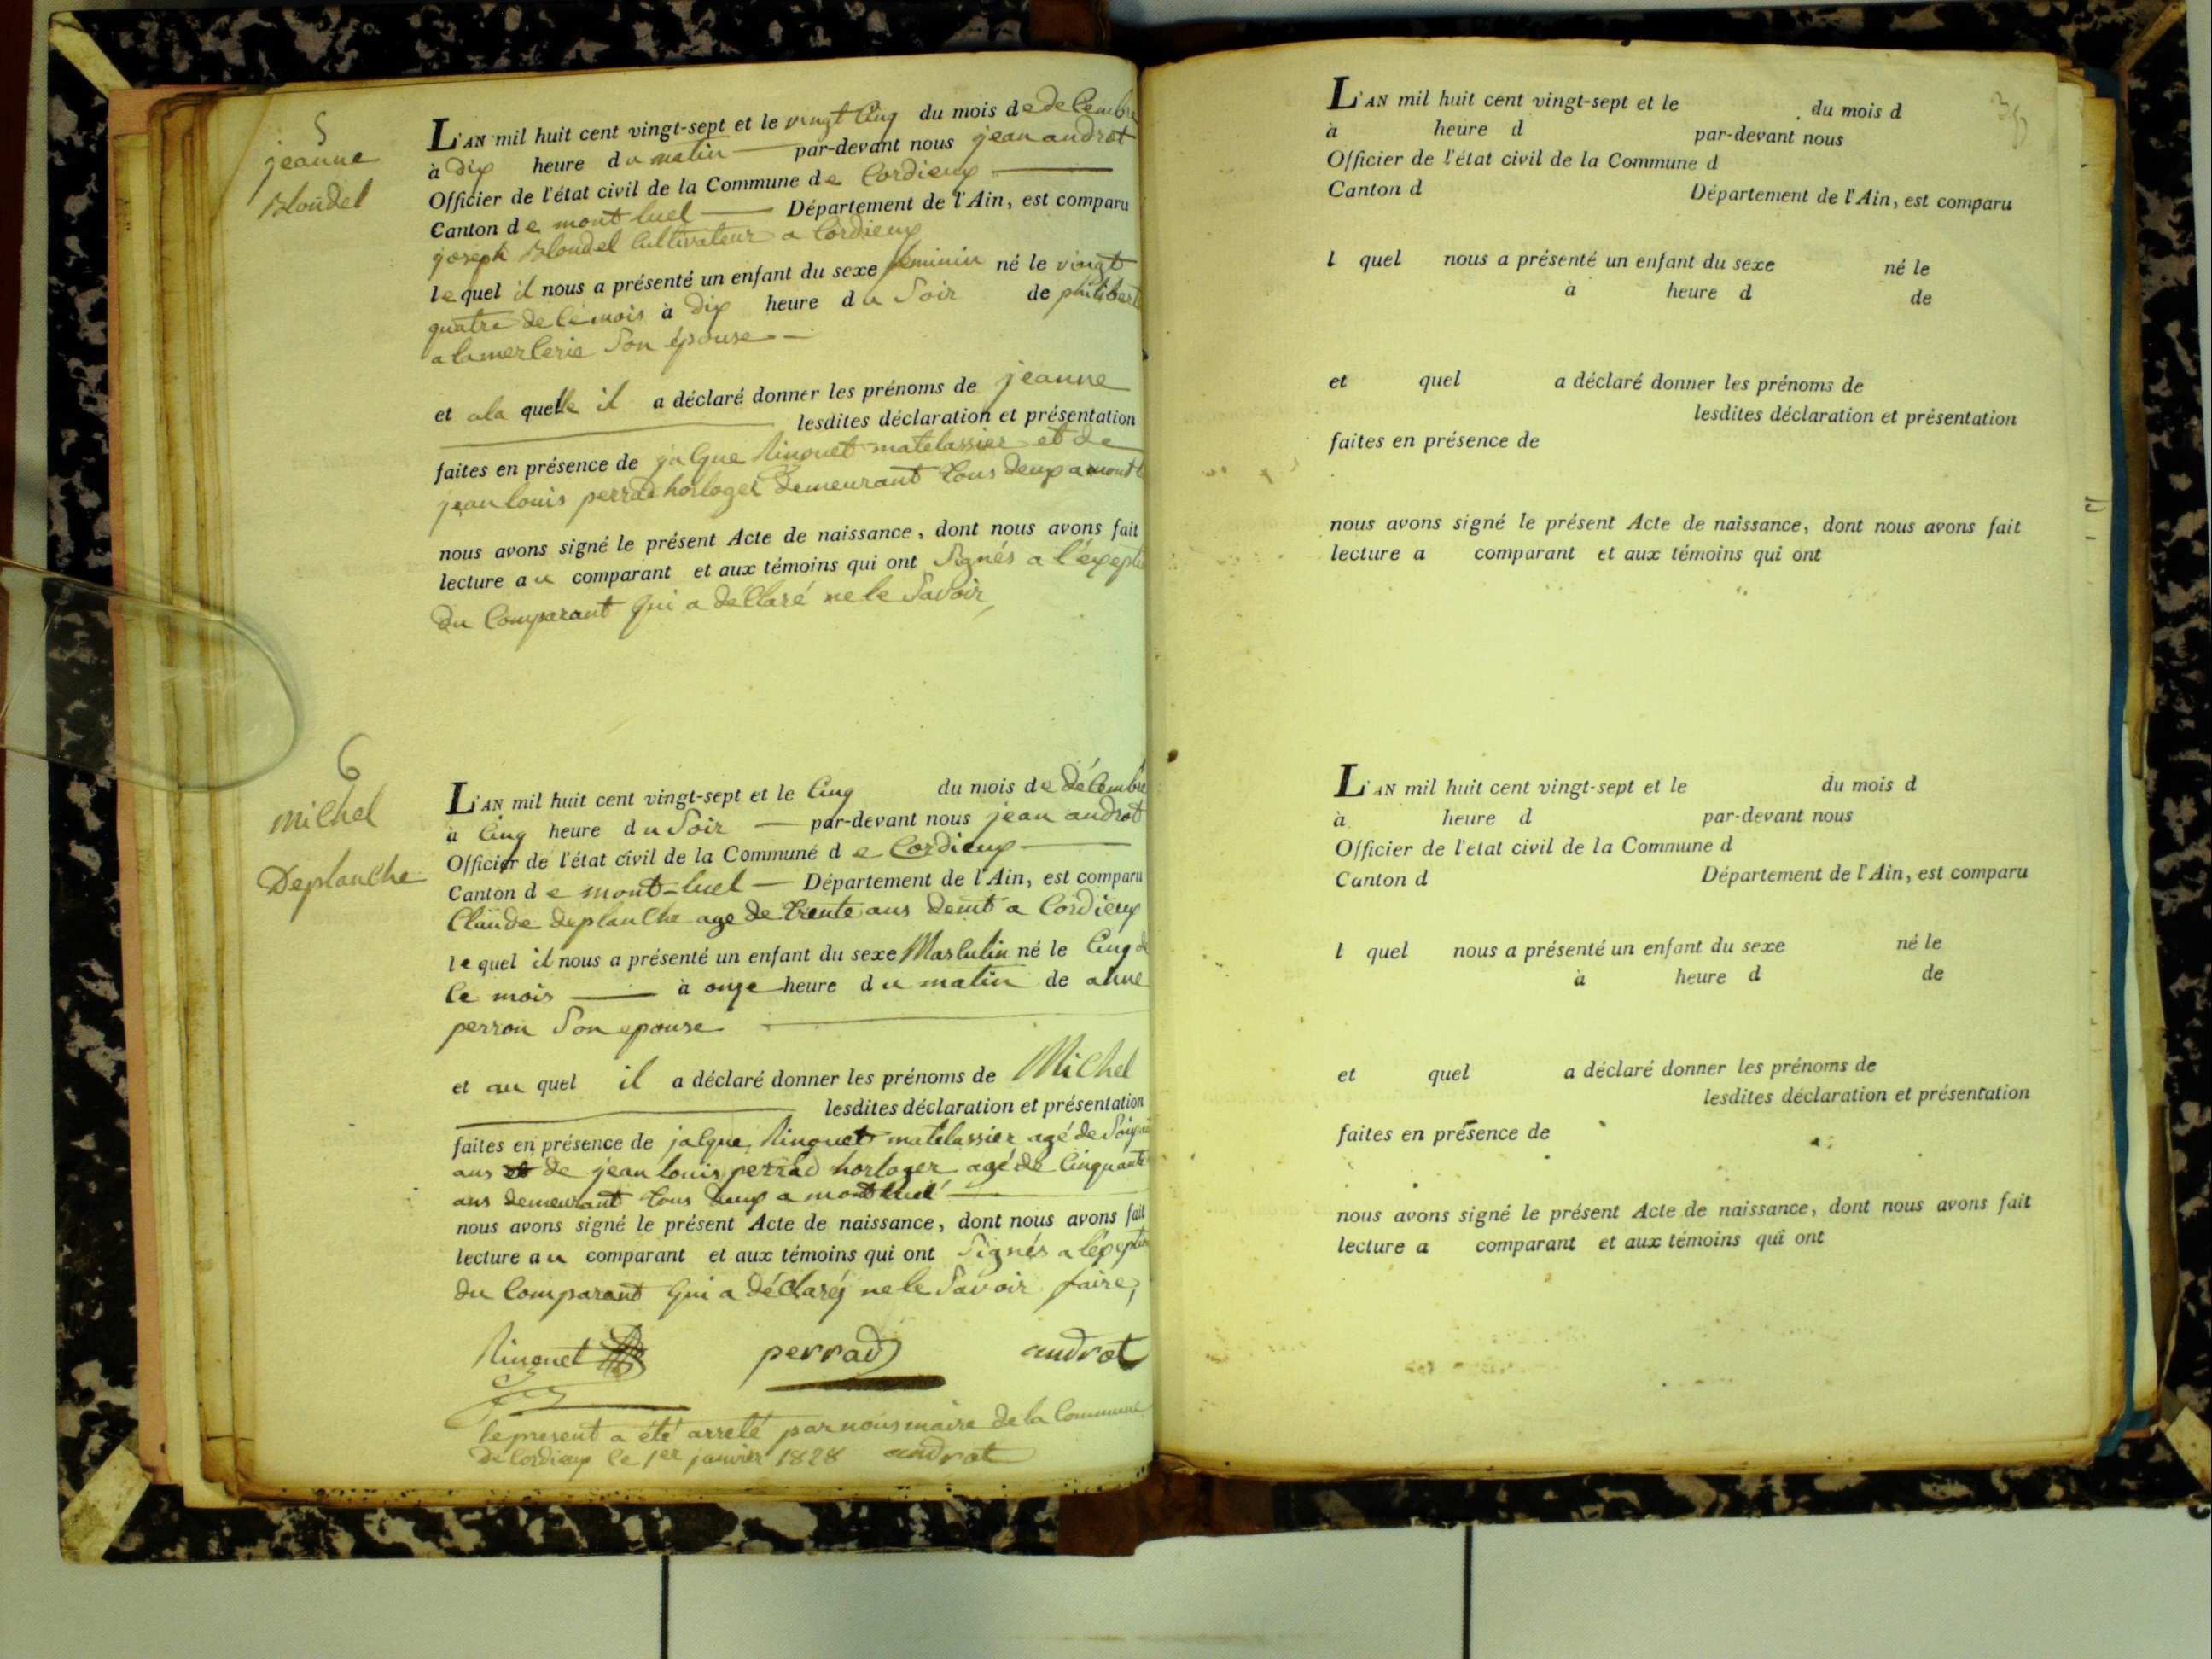 5
jeanne
Blondel
L'AN mil huit cent vingt-sept et le vingt Cinq du mois de deCembre
à dix heure du matin par-devant nous jean androt
Officier de l'état civil de la Commune de Cordieux
Canton de mont luel Département de l'Ain, est comparu
joseph Blondel Cultivateur a Cordieux
lequel il nous a présenté un enfant du sexe feminin né le vingt
quatre de Ce mois à dix heure du Soir de philibert
a la merlerie Son épouse
et a la quelle il a déclaré donner les prénoms de jeanne
lesdites déclaration et présentation
faites en présence de jaCque Ninquet matelassier et de
jean louis perrad horloger demeurant tous deux a
nous avons signé le présent Acte de naissance, dont nous avons fait
lecture au comparant et aux témoins qui ont Signés a l'exept
du Comparant Qui a déClaré ne le Savoir
6
michel
Deplanche
L'AN mil huit cent vingt-sept et le Cinq du mois de déCembre
à Cinq heure du Soir par-devant nous jean androt
Officier de l'état civil de la Commune de Cordieux
Canton de mont-luel Département de l'Ain, est comparu
Claude deplanche age de trente ans demt a Cordieux
lequel il nous a présenté un enfant du sexe MasCulin né le Cinq de
Ce mois à onze heure du matin de anne
perron Son epouse
et au quel il a déclaré donner les prénoms de MiChel
lesdites déclaration et présentation
faites en présence de jaCque Ninquet matelassier agé de
ans et de jean louis perrad horloger agé de Cinquante
ans demeurant tous deux a montluel
nous avons signé le présent Acte de naissance, dont nous avons fait
lecture au comparant et aux témoins qui ont Signés a l'exeption
du Comparant Qui a déClaréz ne le Savoir faire,
Ninquet perrad androt
le present a été arreté par nous maire de la Commune
de Cordieux le 1er janvier 1828 androt
L'AN mil huit cent vingt-sept et le du mois d
à heure d par-devant nous
Officier de l'état civil de la Commune d
Canton d Département de l'Ain, est comparu
l quel nous a présenté un enfant du sexe né le
à heure d de
et quel a déclaré donner les prénoms de
lesdites déclaration et présentation
faites en présence de
nous avons signé le présent Acte de naissance, dont nous avons fait
lecture a comparant et aux témoins qui ont
L'AN mil huit cent vingt-sept et le du mois d
à heure d par-devant nous
Officier de l'etat civil de la Commune d
Canton d Département de l'Ain, est comparu
l quel nous a présenté un enfant du sexe né le
à heure d de
et quel a déclaré donner les prénoms de
lesdites déclaration et présentation
faites en présence de
nous avons signé le présent Acte de naissance, dont nous avons fait
lecture a comparant et aux témoins qui ont